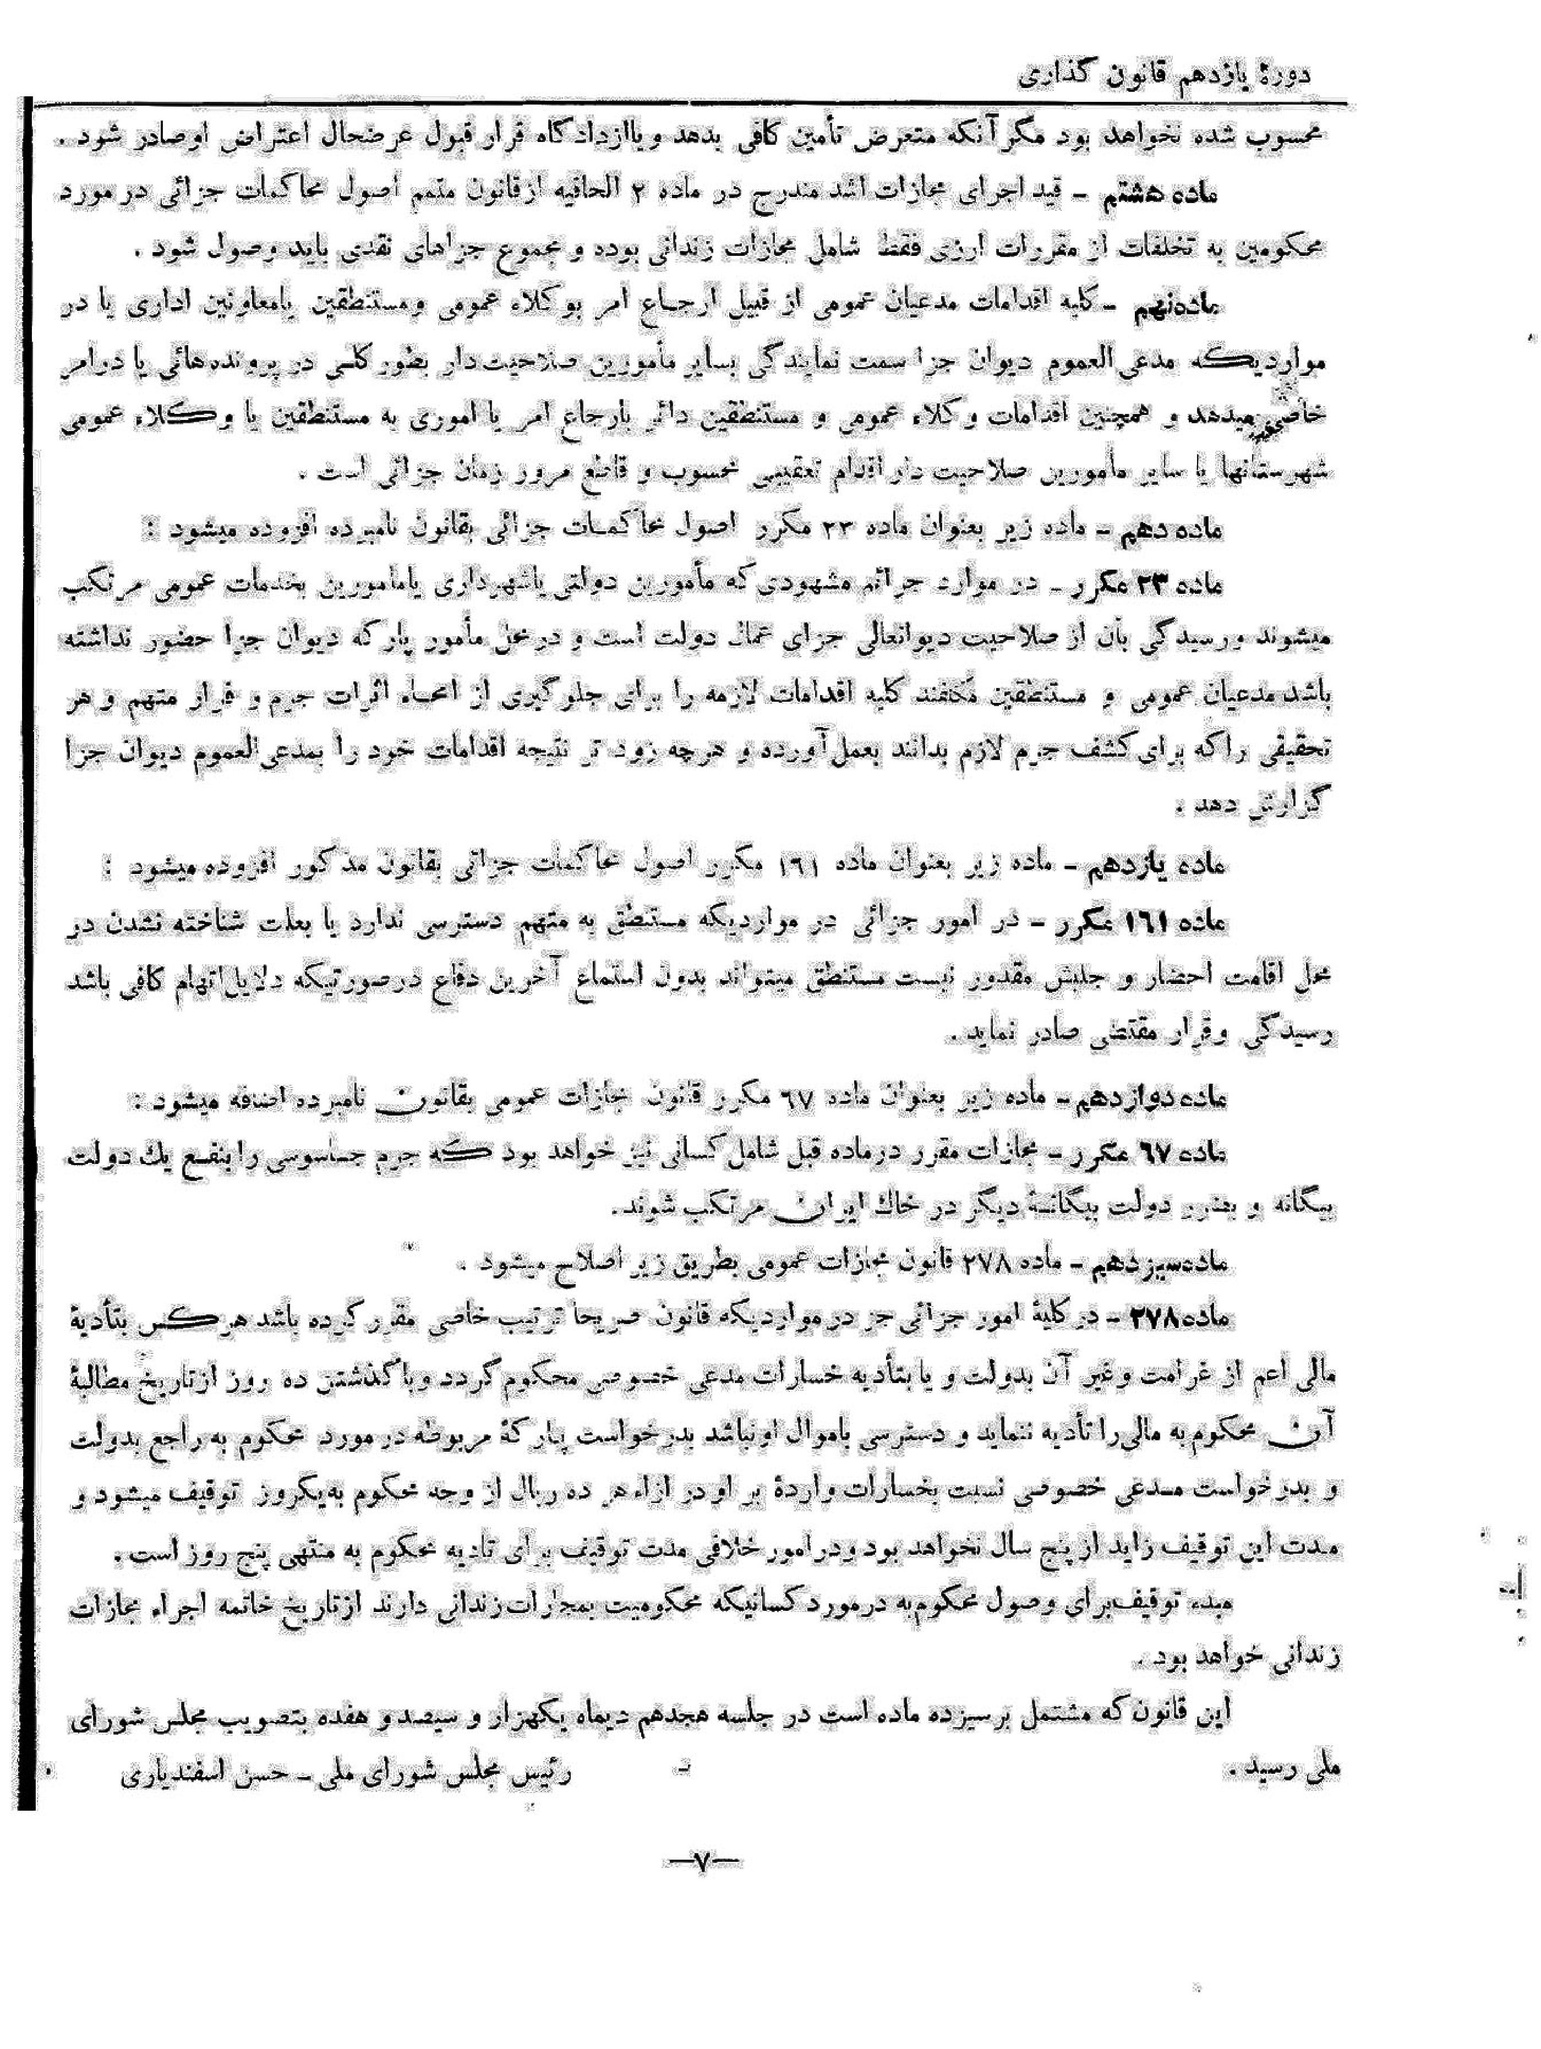 دورهٔ یازدهم قانون گذاری
محسوب شده نخواهد بود مگر آنکه متعرض تأمین کافی بدهد و یا از دادگاه قرار قبول عرضحال اعتراض او صادر شود .
ماده هشتم - قید اجرای مجازات اشد مندرج در ماده ۲ الحاقیه از قانون متمم اصول محاکمات جزائی در مورد
محکومین به تخلفات از مقررات ارزی فقط شامل مجازات زندانی بوده و مجموع جزاهای نقدی باید وصول شود .
ماده نهم - کلیه اقدامات مدعیان عمومی از قبیل ارجاع امر بوکلاء عمومی و مستنطقین یا معاونین اداری یا در
مواردیکه مدعی العموم دیوان جزا سمت نمایندگی بسایر مأمورین صلاحیت دار بطور کلی در پرونده هائی یا در امر
خاصی میدهد و همچنین اقدامات وکلاء عمومی و مستنطقین دائر بارجاع امر یا اموری به مستنطقین یا وکلاء عمومی
شهرستانها یا سایر مأمورین صلاحیت دار اقدام تعقیبی محسوب و قاطع مرور زمان جزائی است .
ماده دهم - ماده زیر بعنوان ماده ۲۳ مکرر اصول محاکمات جزائی بقانون نامبرده افزوده میشود :
ماده ۲۳ مکرر - در موارد جرائم مشهودی که مأمورین دولتی یا شهرداری یا مامورین بخدمات عمومی مرتکب
میشوند و رسیدگی بآن از صلاحیت دیوانعالی جزای عمال دولت است و در محل مأمور پارکه دیوان جزا حضور نداشته
باشد مدعیان عمومی و مستنطقین مکلفند کلیه اقدامات لازمه را برای جلوگیری از امحاء اثرات جرم و فرار متهم و هر
تحقیقی را که برای کشف جرم لازم بدانند بعمل آورده و هر چه زود تر نتیجه اقدامات خود را بمدعی العموم دیوان جزا
گزارش دهد .
ماده یازدهم - ماده زیر بعنوان ماده ۱٦۱ مکرر اصول محاکمات جزائی بقانون مذکور افزوده میشود :
ماده ۱٦۱ مکرر - در امور جزائی در مواردیکه مستنطق به متهم دسترسی ندارد یا بعلت شناخته نشدن در
محل اقامت احضار و جلبش مقدور نیست مستنطق میتواند بدون استماع آخرین دفاع در صورتیکه دلایل اتهام کافی باشد
رسیدگی و قرار مقتضی صادر نماید .
ماده دوازدهم - ماده زیر بعنوان ماده ٦۷ مکرر قانون مجازات عمومی بقانون نامبرده اضافه میشود :
ماده ٦۷ مکرر - مجازات مقرر در ماده قبل شامل کسانی نیز خواهد بود که جرم جاسوسی را بنفع یك دولت
بیگانه و بضرر دولت بیگانهٔ دیگر در خاك ایران مرتکب شوند.
ماده سیزدهم - ماده ۲۷۸ قانون مجازات عمومی بطریق زیر اصلاح میشود .
ماده ۲۷۸ - در کلیهٔ امور جزائی جز در مواردیکه قانون صریحا ترتیب خاصی مقرر کرده باشد هر کس بتأدیهٔ
مالی اعم از غرامت و غیر آن بدولت و یا بتأدیه خسارات مدعی خصوصی محکوم گردد و با گذشتن ده روز از تاریخ مطالبهٔ
آن محکوم به مالی را تأدیه ننماید و دسترسی باموال او نباشد بدرخواست پارکهٔ مربوطه در مورد محکوم به راجع بدولت
و بدرخواست مدعی خصوصی نسبت بخسارات واردهٔ بر او در ازاء هر ده ریال از وجه محکوم به یکروز توقیف میشود و
مدت این توقیف زاید از پنج سال نخواهد بود و در امور خلافی مدت توقیف برای تادیه محکوم به منتهی پنج روز است .
مبدء توقیف برای وصول محکوم به در مورد کسانیکه محکومیت بمجازات زندانی دارند از تاریخ خاتمه اجراء مجازات
زندانی خواهد بود .
این قانون که مشتمل بر سیزده ماده است در جلسه هجدهم دیماه یکهزار و سیصد و هفده بتصویب مجلس شورای
ملی رسید . رئیس مجلس شورای ملی - حسن اسفندیاری
—۷—